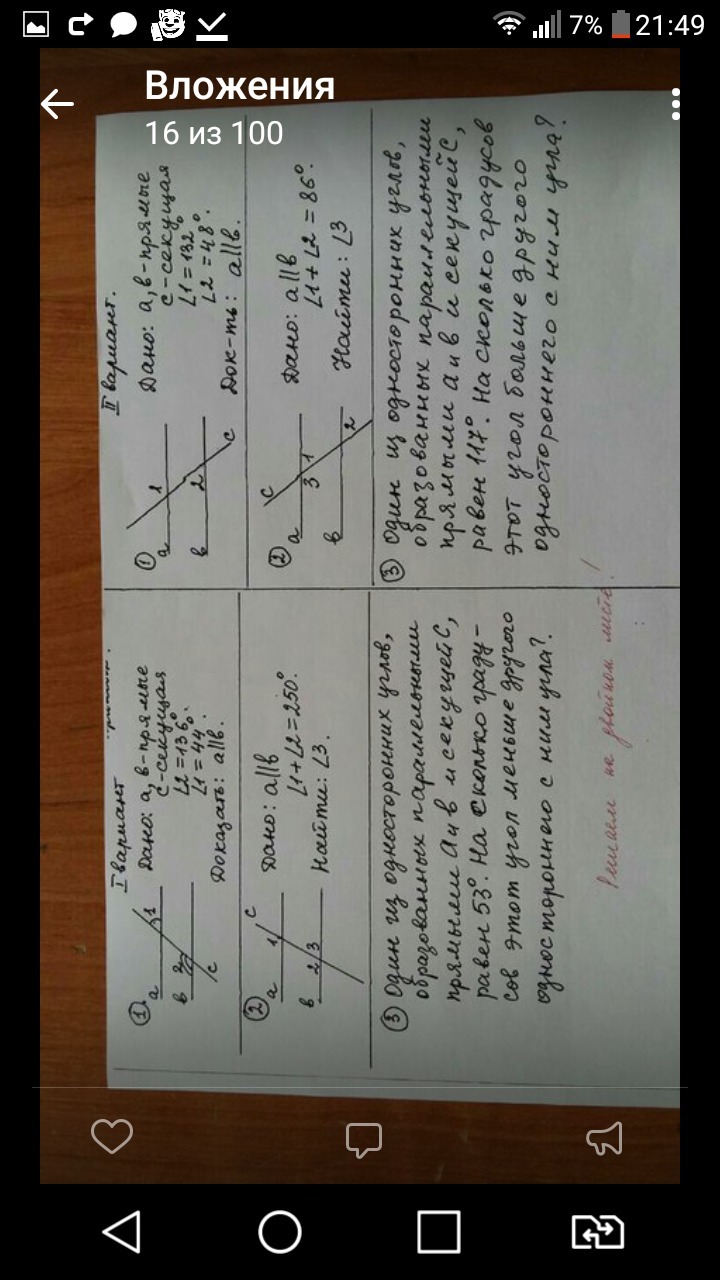 7% 21:49
Вложения
16 из 100
I вариант
① Дано: a, b-прямые
c-секущая
∠2=136°
∠1=44°.
Доказать: a||b.
a
b
1
2
c
② Дано: a||b
∠1+∠2=250°
Найти: ∠3.
a
b
1
c
2 3
③ Один из односторонних углов,
образованных параллельными
прямыми a и b и секущей C,
равен 53°. На сколько граду-
сов этот угол меньше другого
одностороннего с ним угла?
II вариант.
① Дано: a, b-прямые
c-секущая
∠1=132°
∠2=48°.
Док-ть: a||b.
a
b
1
2
c
② Дано: a||b
∠1+∠2=86°.
Найти: ∠3
c
a
b
3 1
2
③ Один из односторонних углов,
образованных параллельными
прямыми a и b и секущей C,
равен 117°. На сколько градусов
этот угол больше другого
одностороннего с ним угла?
Решаем на двойном листе!